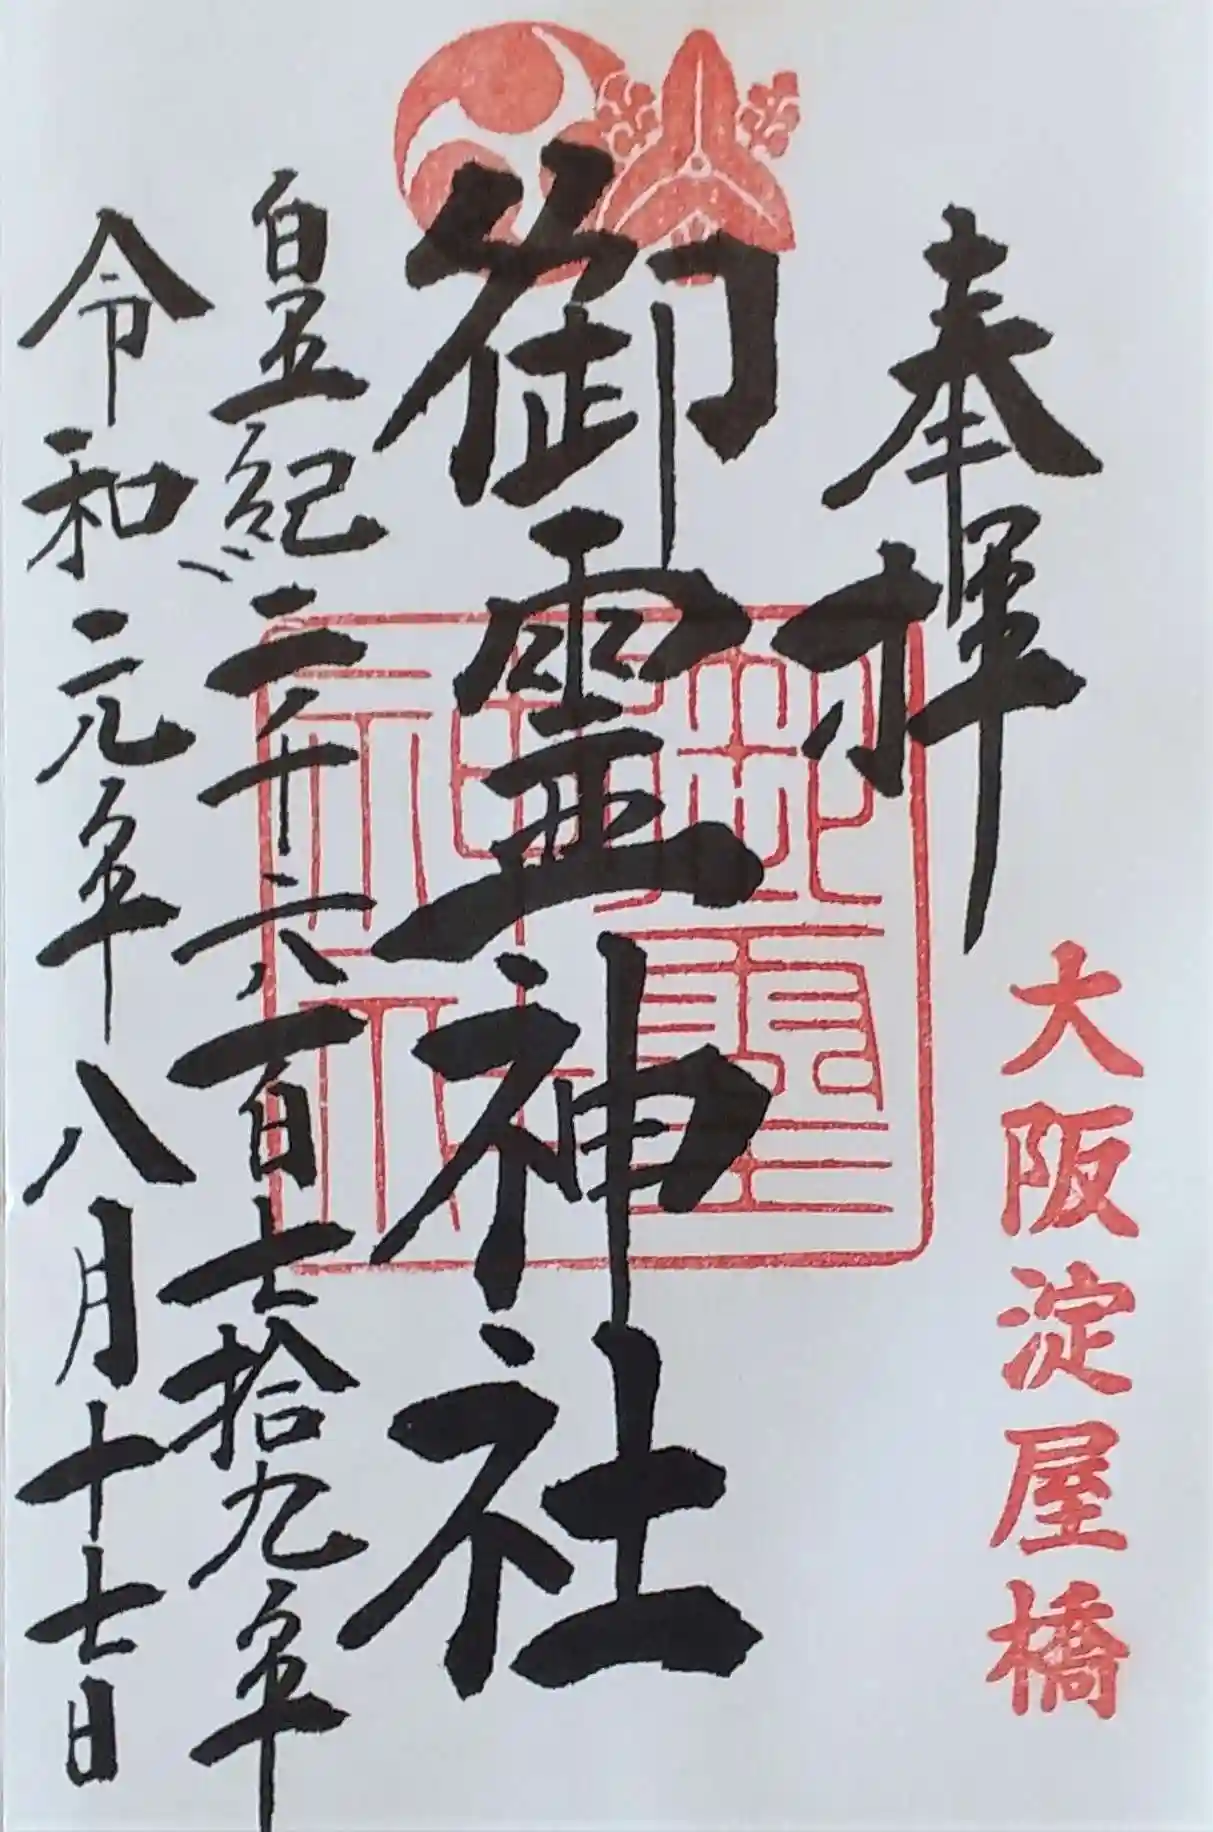 奉拝
大阪淀屋橋
御霊神社
御霊神社
皇紀二千六百七拾九年
令和元年八月十七日